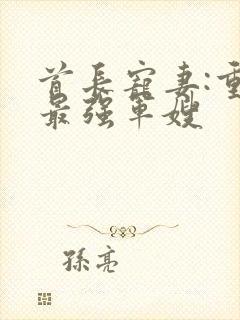 首长宠妻:重
最强军嫂
孫亮